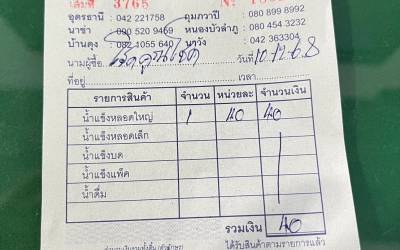 เล่มที่ 3765
อุดรธานี : 042 221758 กุมภวาปี : 080 899 8992
นาข่า : 090 520 9469 หนองบัวลำภู : 080 454 3232
บ้านดุง : 082 1055 640 นาวัง : 042 363304
นามผู้ซื้อ วันที่ 10.12.68
ที่อยู่ เวลา
รายการสินค้า จำนวน หน่วยละ จำนวนเงิน
น้ำแข็งหลอดใหญ่ 1 40 40
น้ำแข็งหลอดเล็ก
น้ำแข็งบด
น้ำแข็งแพ็ค
น้ำดื่ม
รวมเงิน 40
ได้รับสินค้าตามรายการแล้ว